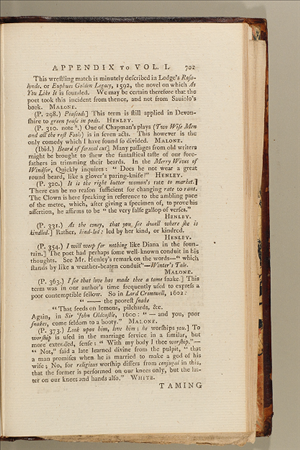 APPENDIX TO VOL. I. 702
This wrestling match is minutely described in Lodge's Rosa-
linde, or Euphues Golden Legacy, 1592, the novel on which As
You Like It is founded. We may be certain therefore that the
poet took this incident from thence, and not from Saviolo's
book. MALONE.
(P. 298.) Peascod;] This term is still applied in Devon-
shire to green pease in pods. HENLEY.
(P. 310. note.) One of Chapman's plays (Two Wise Men
and all the rest Fools) is in seven acts. This however is the
only comedy which I have found so divided. MALONE.
(Ibid.) Beard of formal cut] Many passages from old writers
might be brought to shew the fantastical taste of our fore-
fathers in trimming their beards. In the Merry Wives of
Windsor, Quickly inquires: " Does he not wear a great
round beard, like a glover's paring-knife?" HENLEY.
(P. 320.) It is the right butter woman's rate to market.]
There can be no reason sufficient for changing rate to rant.
The Clown is here speaking in reference to the ambling pace
of the metre, which, after giving a specimen of, to prove his
assertion, he affirms to be " the very false gallop of verses."
HENLEY.
(P. 331.) As the coney, that you see dwell where she is
kindled.] Rather, kind-led; led by her kind, or kindred.
HENLEY.
(P. 354.) I will weep for nothing like Diana in the foun-
tain.] The poet had perhaps some well-known conduit in his
thoughts. See Mr. Henley's remark on the words—" which
stands by like a weather-beaten conduit"—Winter's Tale.
MALONE.
(P. 363.) I see that love has made thee a tame snake] This
term was in our author's time frequently used to express a
poor contemptible fellow. So in Lord Cromwell, 1602:
" — the poorest snake
" That feeds on lemons, pilchards, &c.
Again, in Sir John Oldcastle, 1600: " — and you, poor
snakes, come seldom to a booty." MALONE.
(P. 373.) And upon him, love him; he worships you.] To
worship is used in the marriage service in a similar, but
more extended, sense: " With my body I thee worship."—
" Not," said a late learned divine from the pulpit, " that
a man promises when he is married to make a god of his
wife; No, for religious worship differs from conjugal in this,
that the former is performed on our knees only, but the lat-
ter on our knees and hands also." WHITE.
TAMING